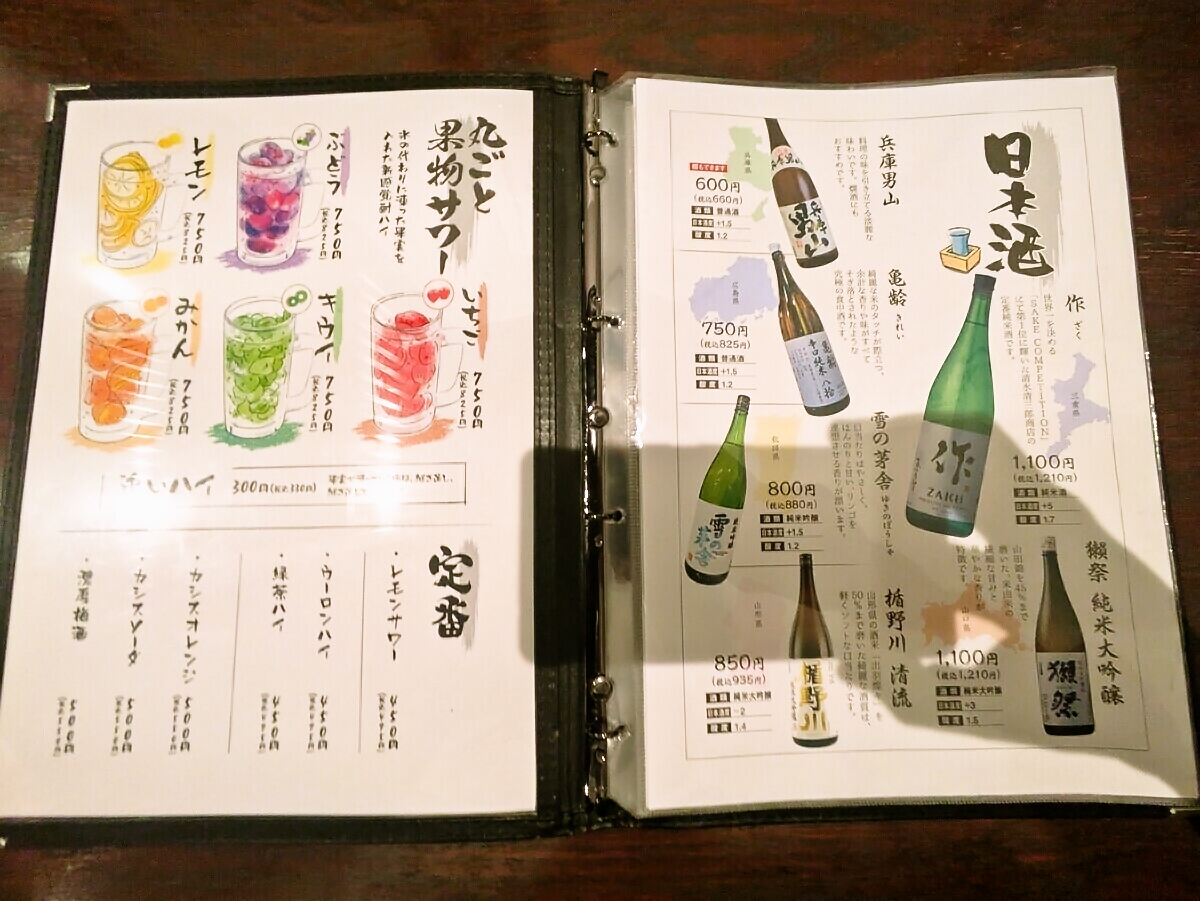 丸ごと
果物サワー
氷の代わりに凍った果実を
入れた新感覚酎ハイ
ぶどう
750円
(税込825円)
レモン
750円
(税込825円)
いちご
750円
(税込825円)
キウイ
750円
(税込825円)
みかん
750円
(税込825円)
ハイ
300円(税込330円)
定番
・レモンサワー
450円
・ウーロンハイ
450円
・緑茶ハイ
450円
・カシスオレンジ
500円
・カシスソーダ
500円
500円
日本酒
作 ざく
世界一を決める
「SAKE COMPETITION」
にて第1位に輝いた清水清三郎商店の
定番純米酒です。
三重県
作
ZAKU
1,100円
(税込1,210円)
酒類 純米酒
日本酒度 +5
酸度 1.7
獺祭 純米大吟醸
山田錦を45%まで
磨いた、米由来の
繊細な甘みと
華やかな香りが
特徴です。
山口県
獺祭
1,100円
(税込1,210円)
酒類 純米大吟醸
日本酒度 +3
酸度 1.5
兵庫男山
料理の味を引き立てる淡麗な
味わいです。燗酒にも
おすすめです。
兵庫県
燗もできます
600円
(税込660円)
酒類 普通酒
日本酒度 +1.5
酸度 1.2
亀齢 きれい
綺麗な米のタッチが際立つ、
余計な香りや味がすべて
そぎ落とされたような
究極の食中酒です。
広島県
亀齢
辛口純米 八拾
750円
(税込825円)
酒類 普通酒
日本酒度 +1.5
酸度 1.2
雪の茅舎 ゆきのぼうしゃ
口当たりはやさしく、
ほんのりと甘いリンゴを
連想させる香りが漂います。
秋田県
雪の茅舎
800円
(税込880円)
酒類 純米吟醸
日本酒度 +1.5
酸度 1.2
楯野川 清流
山形県の酒米「出羽燦々」を
50%まで磨いた綺麗な酒質は、
軽くソフトな口当たりです。
山形県
楯野川
850円
(税込935円)
酒類 純米大吟醸
日本酒度 −2
酸度 1.4